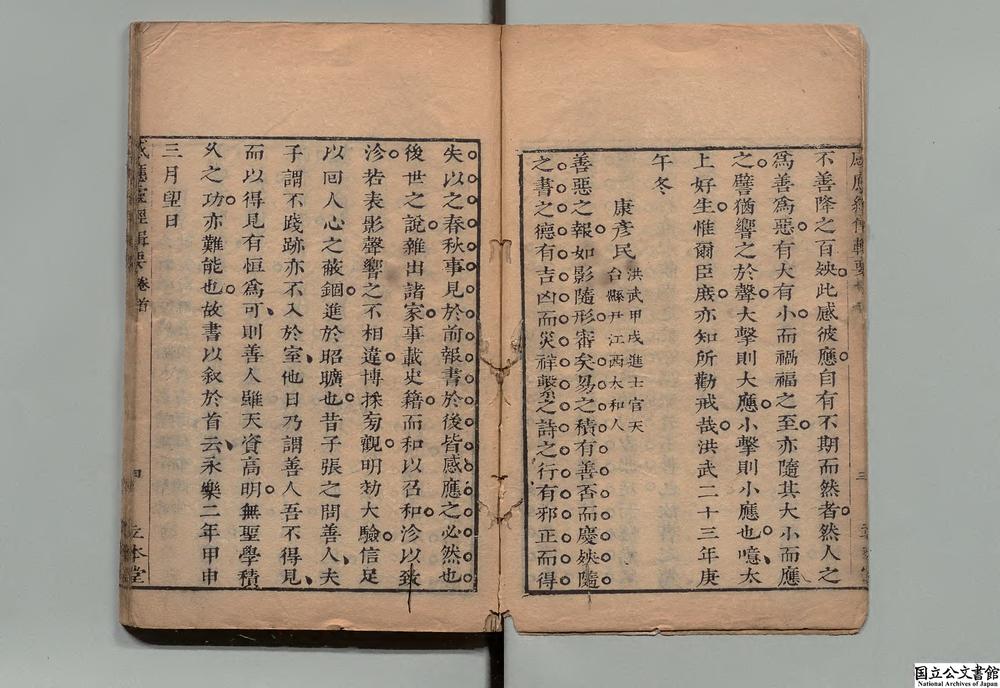 不善降之百殃此感彼應自有不期而然者然人之
爲善爲惡有大有小而禍福之至亦隨其大小而應
之譬猶響之於聲大擊則大應小擊則小應也噫太
上好生惟爾臣庶亦知所勸戒哉洪武二十三年庚
午冬
康彥民 洪武甲戌進士官天
台縣尹江西太和人
善惡之報如影隨形審矣易之積有善否而慶殃隨
之書之德有吉凶而災祥繫之詩之行有邪正而得
三
失以之春秋事見於前報書於後皆感應之必然也
後世之說雜出諸家事載史籍而和以召和沴以致
沴若表影聲響之不相違博採匊觀明効大驗信足
以回人心之蔽錮進於昭曠也昔子張之問善人夫
子謂不踐跡亦不入於室他日乃謂善人吾不得見
而以得見有恒爲可則善人雖天資高明無聖學積
久之功亦難能也故書以叙於首云永樂二年甲申
三月望日
感應靈經輯要 卷首 四 立本堂
国立公文書館
National Archives of Japan